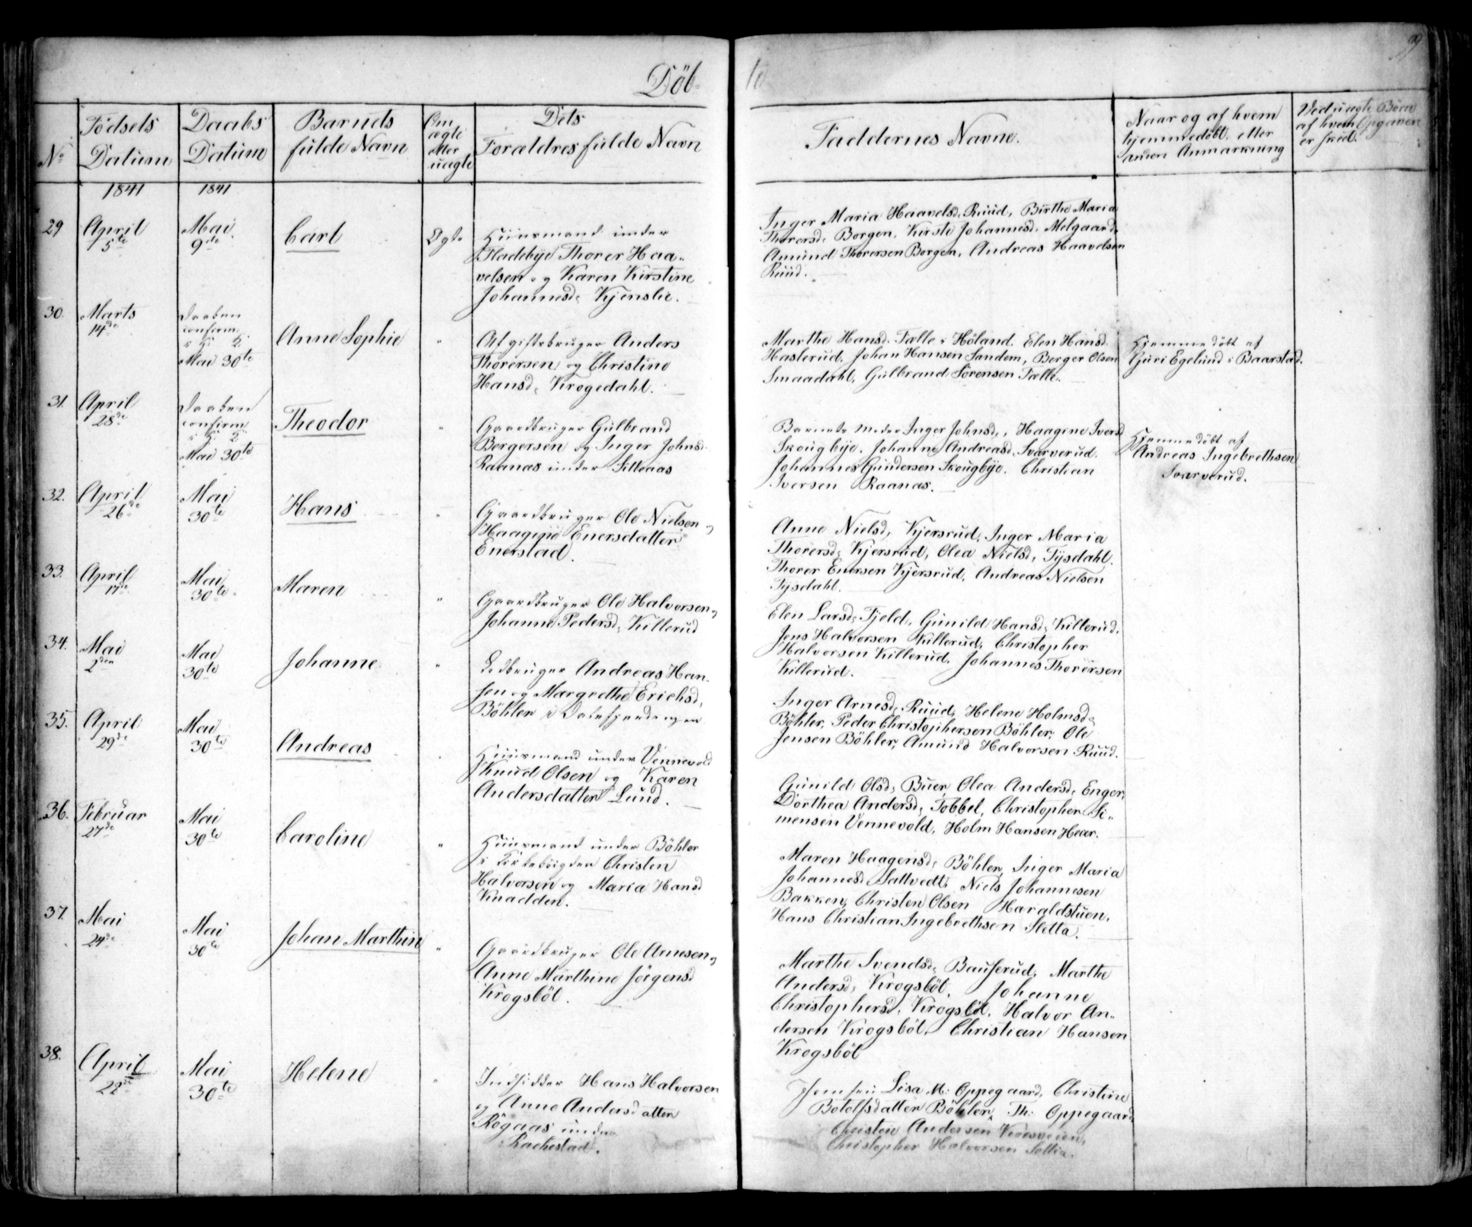 Döb-
te
29
No
Födsels Datum
Daabs Datum
Barnets fulde Navn
Om ægte eller uægte
Dets Forældres fulde Navn
Faddernes Navne.
Naar og af hvem hjemmedöbt, eller anden Anmærkning
Ved uægte Börn af hvem Opgaven er skeed.
1841
1841
29
April 5te
Mai 9de
Carl
Ægte
Huusmand under
Fladebye Thorer Haa-
velsen og Karen Kirstine
Johannesd. Kjenslie.
Inger Maria Haavelsd. Ruud, Birthe Maria
Thorersd. Borgen, Kirsti Johannesd. Melgaard,
Amund Thorersen Borgen, Andreas Haavelsen
Ruud.
30.
Marts 14de
Daaben
confirm.
i K.
Mai 30te
Anne Sophie
"
Afgiftsbruger Anders
Thorersen og Christine
Hansd. Krogedahl.
Marthe Hansd. Tælle i Höland, Elen Hansd.
Haslerud, Johan Hansen Sandem, Berger Olsen
Smaadahl, Gulbrand Sörensen Tælle.
Hjemmedöbt af
Guri Egelund i Baarstad.
31.
April 28de
Daaben
confirm
i K.
Mai 30te
Theodor
"
Gaardbruger Gulbrand
Borgersen og Inger Johnsd.
Raanas under Sitteaas
Barnets Moder Inger Johnsd., Haagine Iversd.
Skougbye, Johanne Andreasd. Svarverud.
Johannes Gundersen Skougbye, Christian
Iversen Raanas.
Hjemmedöbt af
Andreas Ingebrethsen
Svarverud.
32.
April 26de
Mai 30te
Hans
"
Gaardbruger Ole Nielsen og
Haagine Enersdatter
Enerstad.
Anne Nielsd. Kjersrud, Inger Maria
Thorersd. Kjersrud, Olea Nielsd. Tysdahl.
Thorer Enersen Kjersrud, Andreas Nielsen
Tysdahl.
33.
April 17de
Mai 30te
Maren
"
Gaardbruger Ole Halvorsen og
Johanne Pedersd. Killerud
Elen Larsd. Fjeld, Gunild Hansd. Killerud,
Jens Halvorsen Killerud, Christopher
Halvorsen Killerud, Johannes Thorersen
Killerud.
34.
Mai 2den
Mai 30te
Johanne
"
Ledbruger Andreas Han-
sen og Margrethe Erichsd.
Böhler i Dalefjerdingen
Inger Arnesd. Ruud, Helene Holmsd.
Böhler, Peder Christophersen Böhler, Ole
Jensen Böhler, Amund Halvorsen Ruud.
35.
April 29de
Mai 30te
Andreas
"
Huusmand under Vennevold
Knud Olsen og Karen
Andersdatter Lund.
Gunild Olsd. Buer, Olea Andersd. Enger,
Dorthea Andersd. Tobbel, Christopher Si-
mensen Vennevold, Holm Hansen Heer.
36.
Februar 27de
Mai 30te
Caroline
"
Huusmand under Böhler
i Kirkebögden Christen
Halvorsen og Maria Hansd.
Knadden.
Maren Haagensd. Böhler, Inger Maria
Johannesd. Sattvedt, Niels Johannesen
Bakken, Christen Olsen Haraldstuen,
Hans Christian Ingebrethsen Sletta.
37.
Mai 24de
Mai 30te
Johan Marthin
"
Gaardbruger Ole Arnesen og
Anne Marthine Jörgensd.
Krogsböl.
Marthe Svendsd. Bauserud, Marthe
Andersd. Krogsböl, Johanne
Christophersd. Krogsböl, Halvor An-
dersen Krogsböl, Christian Hansen
Krogsböl
38.
April 22de
Mai 30te
Helene
"
Indsidder Hans Halvorsen
og Anne Andersdatter
Rögaas under
Rackestad.
Lisa M. Oppegaard, Christine
Botolfsdatter Böhler, Th. Oppegaard,
Christen Andersen
Christopher Halvorsen